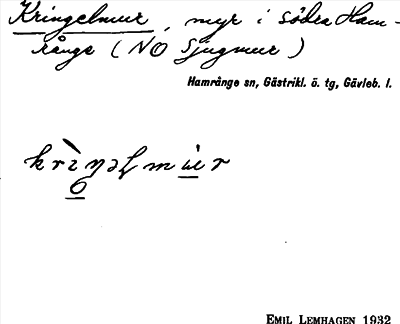 Kringelmur, myr i södra Ham-
rånge (NO Sjugmur)
Hamrånge sn, Gästrikl. ö. tg, Gävleb. l.
EMIL LEMHAGEN 1932